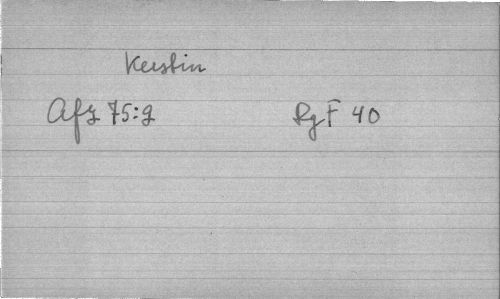 Kerstin
Afz 75:2 RgF 40